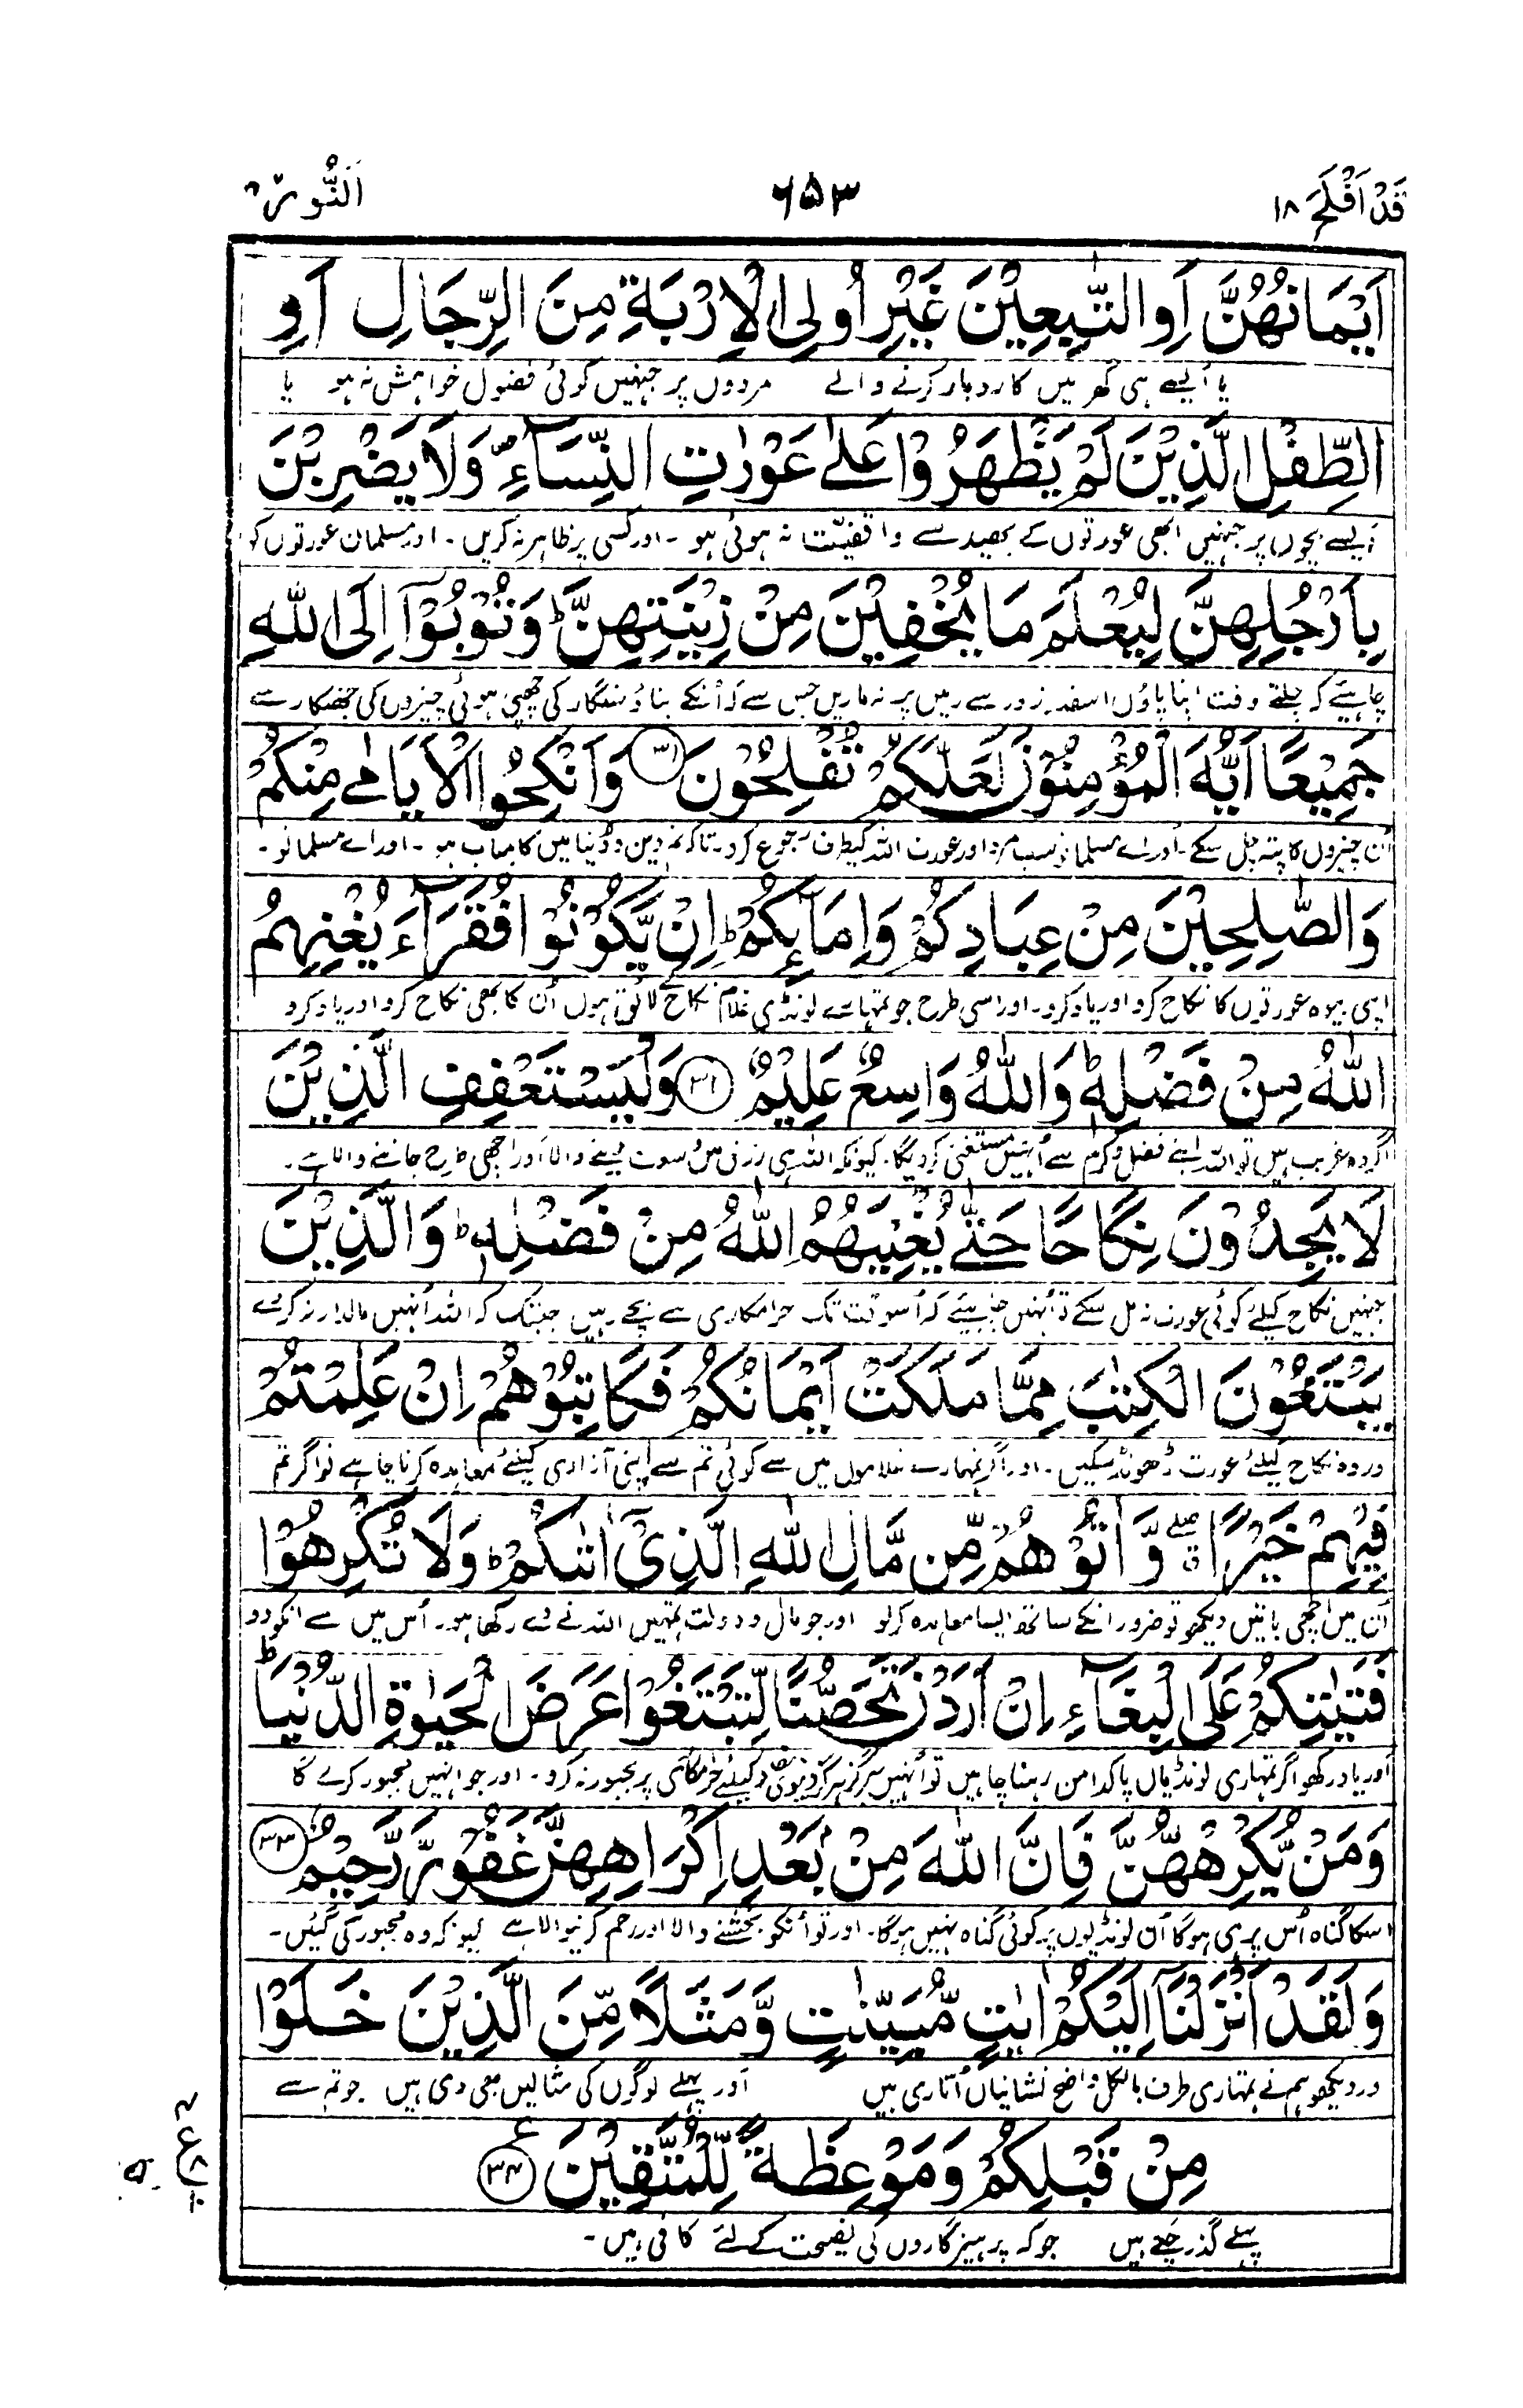 قَدْ اَفْلَحَ ۱۸
۶۵۳
اَلنُّوْر
اَيْمَانُهُنَّ اَوِ التّٰبِعِيْنَ غَيْرِ اُولِى الْاِرْبَةِ مِنَ الرِّجَالِ اَوِ
یا اُیسے ہی گھر میں کاروبار کرنے والے مردوں پر جنہیں کوئی فضول خواہش نہ ہو یا
الطِّفْلِ الَّذِيْنَ لَمْ يَظْهَرُوْا عَلٰى عَوْرٰتِ النِّسَآءِ ۖ وَلَا يَضْرِبْنَ
ایسے بچوں پر جنہیں ابھی عورتوں کے بھید سے واقفیّت نہ ہوئی ہو ۔ اور کسی پر ظاہر نہ کریں ۔ اور مسلمان عورتوں کو
بِاَرْجُلِهِنَّ لِيُعْلَمَ مَا يُخْفِيْنَ مِنْ زِيْنَتِهِنَّ ؕ وَتُوْبُوْٓا اِلَى اللّٰهِ
چاہیئے کہ چلتے وقت اپنا پاوُں اسقدر زور سے زمیں پر نہ ماریں جس سے کہ اُنکے بناؤ سنگار کی چھپی ہوئی چیزوں کی جھنکار سے
جَمِيْعًا اَيُّهَ الْمُؤْمِنُوْنَ لَعَلَّكُمْ تُفْلِحُوْنَ ۳۱ وَاَنْكِحُوا الْاَيَامٰى مِنْكُمْ
اُن چیزوں کا پتہ چل سکے ۔ اور اے مسلمانو سب مرد اور عورت اللہ کیطرف رجوع کرو ۔ تاکہ تم دین و دُنیا میں کامیاب ہو ۔ اور اے مسلمانو ۔
وَالصّٰلِحِيْنَ مِنْ عِبَادِكُمْ وَاِمَآئِكُمْ ؕ اِنْ يَّكُوْنُوْا فُقَرَآءَ يُغْنِهِمُ
اپنی بیوہ عورتوں کا نکاح کرو اور یاد کرو ۔ اور اسی طرح جو تمہارے لونڈی غلام نکاح کے لائق ہوں اُن کا بھی نکاح کرو اور یاد کرو
اللّٰهُ مِنْ فَضْلِهٖ ؕ وَاللّٰهُ وَاسِعٌ عَلِيْمٌ ۳۲ وَلْيَسْتَعْفِفِ الَّذِيْنَ
اگر وہ غریب ہیں تو اللہ اپنے فضل و کرم سے اُنہیں مستغنی کر دیگا ۔ کیونکہ اللہ ہی رزق میں وُسعت دینے والا اور اچھی طرح جاننے والا ہے ۔
لَا يَجِدُوْنَ نِكَاحًا حَتّٰى يُغْنِيَهُمُ اللّٰهُ مِنْ فَضْلِهٖ ؕ وَالَّذِيْنَ
جنہیں نکاح کیلئے کوئی عورت نہ مل سکے تو اُنہیں چاہیئے کہ اُسوقت تک حرامکاری سے بچے رہیں جبتک کہ اللہ اُنہیں مالدار نہ کر دے
يَبْتَغُوْنَ الْكِتٰبَ مِمَّا مَلَكَتْ اَيْمَانُكُمْ فَكَاتِبُوْهُمْ اِنْ عَلِمْتُمْ
ور وہ نکاح کیلئے عورت ڈھونڈ سکیں ۔ اور اگر تمہارے غلاموں میں سے کوئی تم سے اپنی آزادی کیلئے معاہدہ کرنا چاہے تو اگر تم
فِيْهِمْ خَيْرًا ۖ وَّ اٰتُوْهُمْ مِّنْ مَّالِ اللّٰهِ الَّذِيْٓ اٰتٰىكُمْ ؕ وَلَا تُكْرِهُوْا
اُن میں اچھی باتیں دیکھو تو ضرور انکے ساتھ ایسا معاہدہ کر لو اور جو مال و دولت تمہیں اللہ نے دے رکھا ہو ۔ اُس میں سے انکو دو
فَتَيٰتِكُمْ عَلَى الْبِغَآءِ اِنْ اَرَدْنَ تَحَصُّنًا لِّتَبْتَغُوْا عَرَضَ الْحَيٰوةِ الدُّنْيَا ؕ
اور یاد رکھو اگر تمہاری لونڈیاں پاکدامن رہنا چاہیں تو اُنہیں ہرگز ہرگز دنیوی مفاد کیلئے حرامکاری پر مجبور نہ کرو ۔ اور جو انہیں مجبور کرے گا
وَمَنْ يُّكْرِهْهُّنَّ فَاِنَّ اللّٰهَ مِنْۢ بَعْدِ اِكْرَاهِهِنَّ غَفُوْرٌ رَّحِيْمٌ ۳۳
اسکا گناہ اُس پر ہی ہوگا اُن لونڈیوں پر کوئی گناہ نہیں ہوگا ۔ اور تو اُنکو بخشنے والا اور رحم کرنیوالا ہے کیونکہ وہ مجبور کی گئیں ۔
وَلَقَدْ اَنْزَلْنَآ اِلَيْكُمْ اٰيٰتٍ مُّبَيِّنٰتٍ وَّمَثَلًا مِّنَ الَّذِيْنَ خَلَوْا
ور دیکھو ہم نے تمہاری طرف بالکل واضح نشانیاں اُتاری ہیں اور پہلے لوگوں کی مثالیں بھی دی ہیں جو تم سے
مِنْ قَبْلِكُمْ وَمَوْعِظَةً لِّلْمُتَّقِيْنَ ۳۴
پہلے گذر چکے ہیں جو کہ پرہیزگاروں کی نصیحت کے لئے کافی ہیں ۔